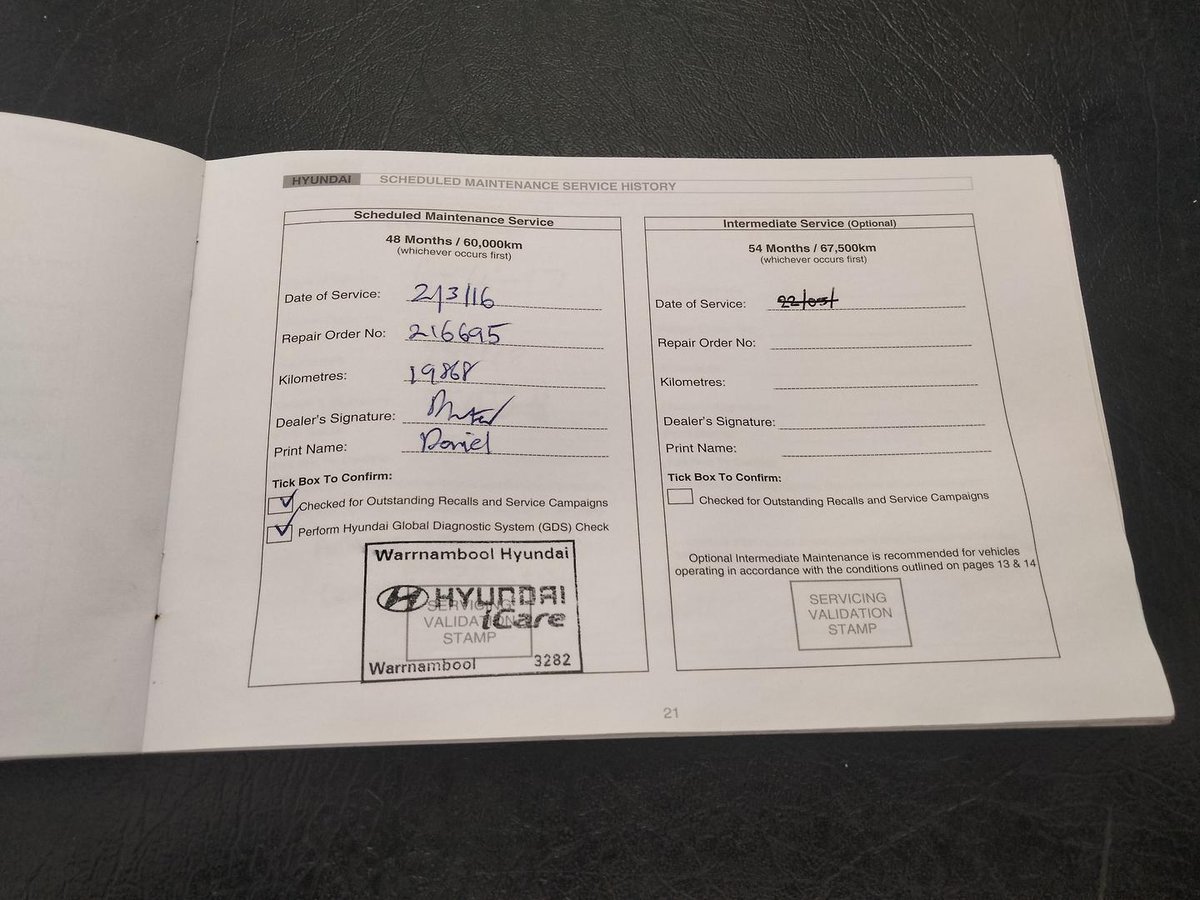 HYUNDAI SCHEDULED MAINTENANCE SERVICE HISTORY
Scheduled Maintenance Service
48 Months / 60,000km
(whichever occurs first)
Date of Service: 2/3/16
Repair Order No: 216695
Kilometres: 19868
Dealer's Signature:
Print Name: Daniel
Tick Box To Confirm:
Checked for Outstanding Recalls and Service Campaigns
Perform Hyundai Global Diagnostic System (GDS) Check
Warrnambool Hyundai
HYUNDAI
iCare
SERVICING
VALIDATION
STAMP
Warrnambool 3282
Intermediate Service (Optional)
54 Months / 67,500km
(whichever occurs first)
Date of Service: 22/05/
Repair Order No:
Kilometres:
Dealer's Signature:
Print Name:
Tick Box To Confirm:
Checked for Outstanding Recalls and Service Campaigns
Optional Intermediate Maintenance is recommended for vehicles
operating in accordance with the conditions outlined on pages 13 & 14
SERVICING
VALIDATION
STAMP
21